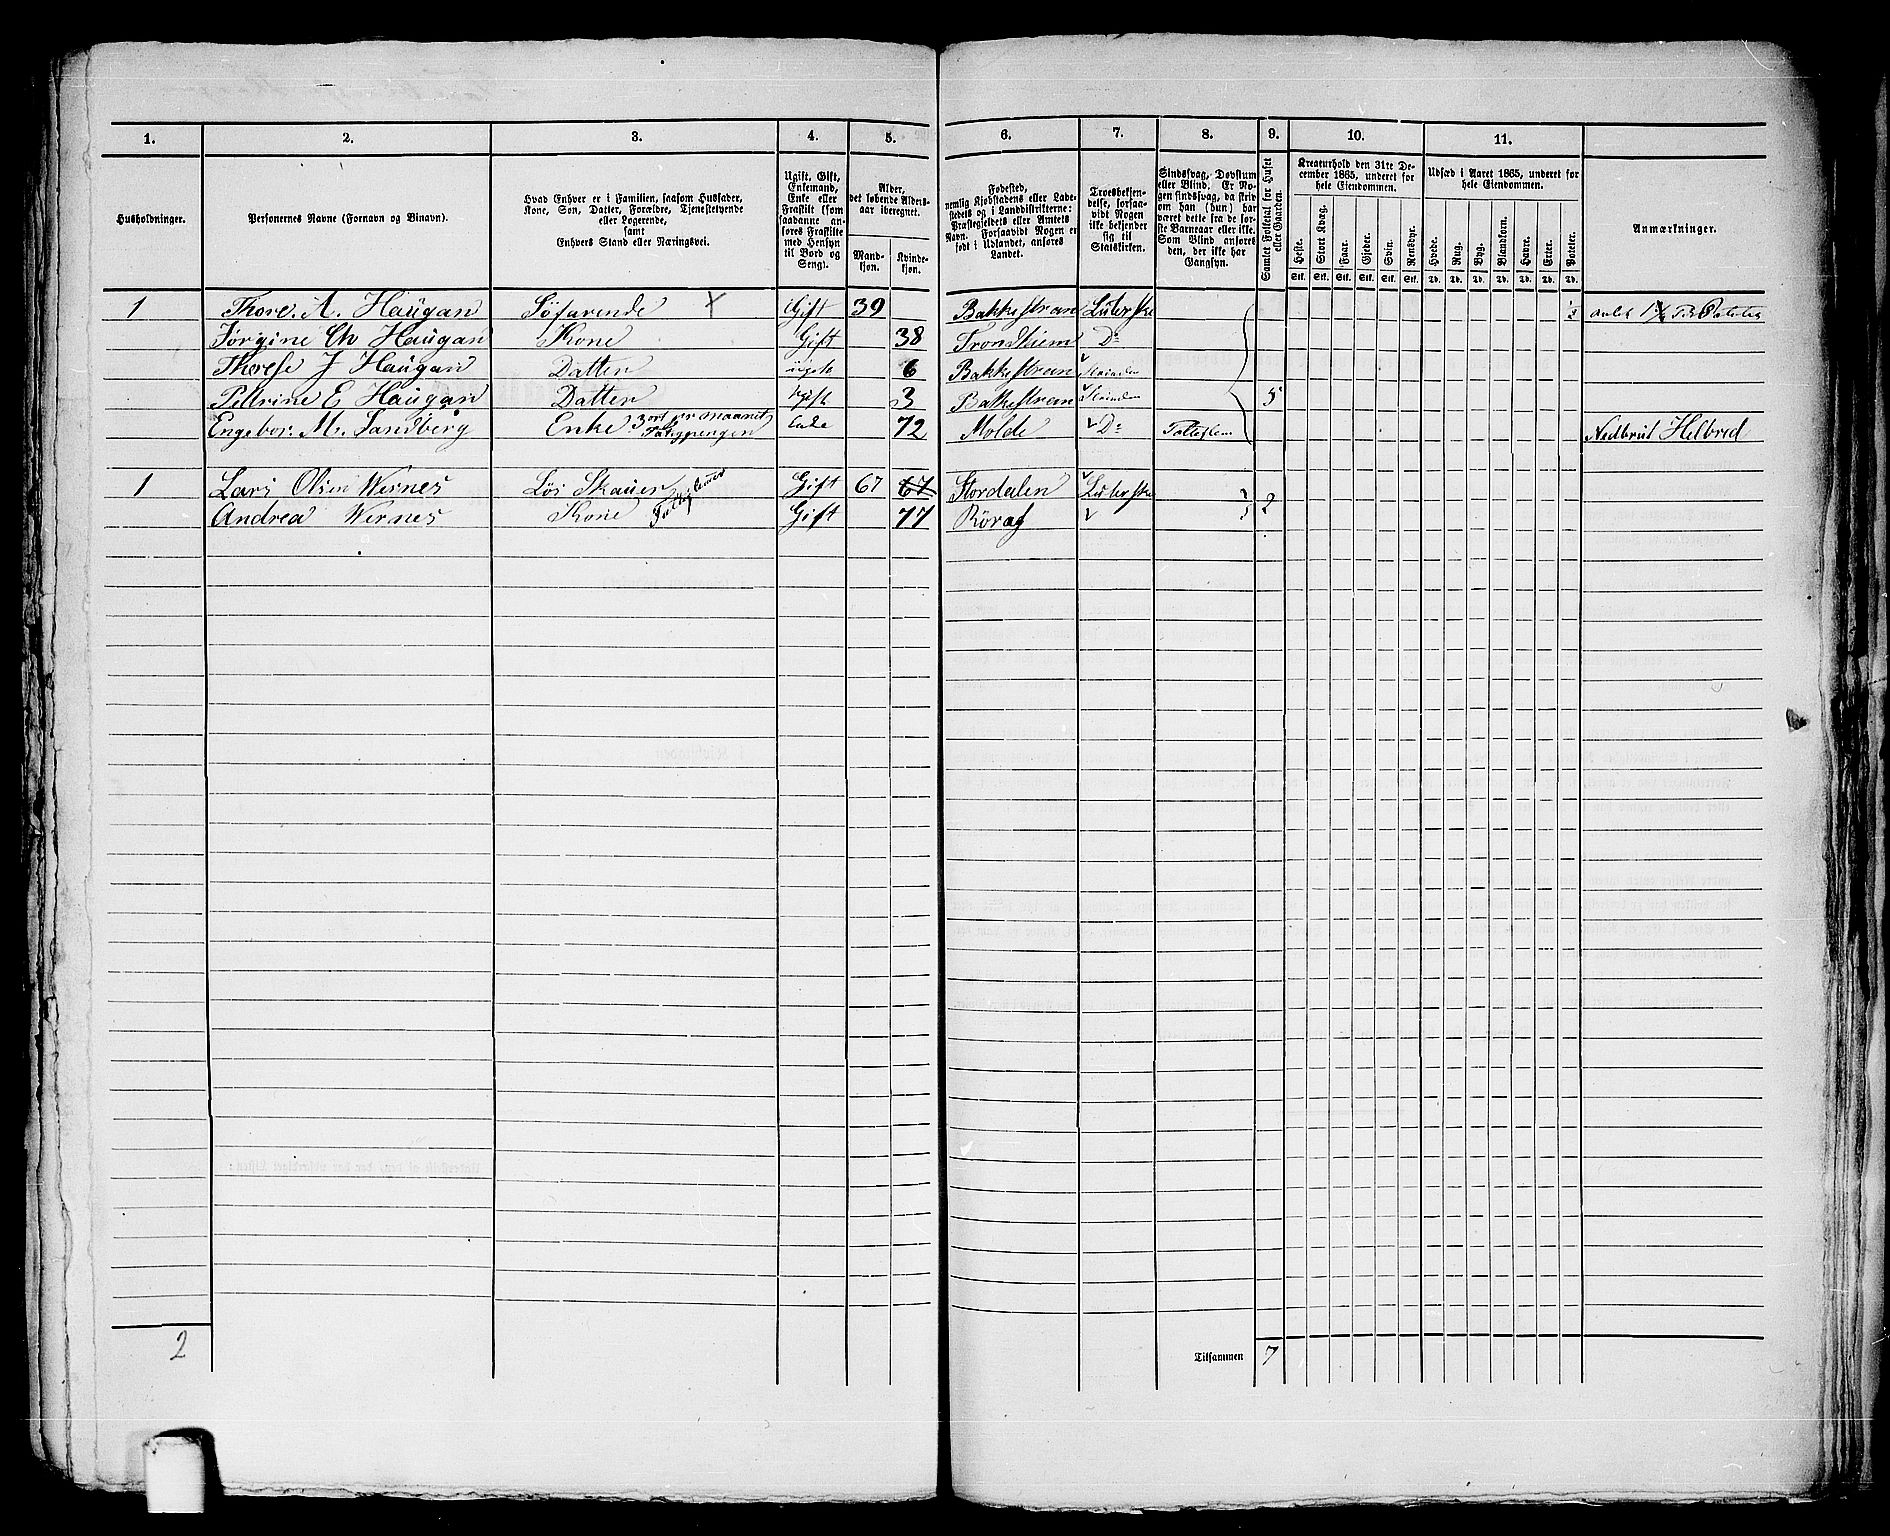 1. 2. 3. 4. 5. 6. 7. 8. 9. 10. 11.
Husholdninger.
Personernes Navne (Fornavn og Binavn).
Hvad Enhver er i Familien, saasom Husfader,
Kone, Søn, Datter, Forældre, Tjenestetyende
eller Logerende,
samt
Enhvers Stand eller Næringsvei.
Ugift, Gift,
Enkemand,
Enke eller
Fraskilt (som
saadanne an-
føres Fraskilte
med Hensyn
til Bord og
Seng).
Alder,
det løbende Alders-
aar iberegnet.
Mand-
kjøn.
Kvinde-
kjøn.
Fødested,
nemlig Kjøbstadens eller Lade-
stedets og i Landdistrikterne:
Præstegjeldets eller Amtets
Navn. Forsaavidt Nogen er
født i Udlandet, anføres
Landet.
Troesbekjen-
delse, forsaa-
vidt Nogen
ikke bekjender
sig til
Statskirken.
Sindssvag, Døvstum
eller Blind. Er No-
gen sindssvag, da skriv
om han (hun) har
været dette fra de før-
ste Barneaar eller ikke.
Som Blind anføres
den, der ikke har
Gangsyn.
Samlet Folketal for Huset
eller Gaarden.
Kreaturhold den 31te De-
cember 1865, underet for
hele Eiendommen.
Heste. Stort Kvæg. Faar. Gjeder. Svin. Rensdyr.
Stk. Stk. Stk. Stk. Stk. Stk.
Udsæd i Aaret 1865, underet for
hele Eiendommen.
Hvede. Rug. Byg. Blandkorn. Havre. Erter. Poteter.
Td. Td. Td. Td. Td. Td. Td.
Anmærkninger.
1 Thore. A. Haugan Søfarende x Gift 39 Bakkestran Luterske
Jørgine Ch Haugan Kone Gift 38 Trondhiem Do
Therese J Haugan Datter 6 Bakkestran
Petrine E Haugan Datter 3 Bakkestran 5
Engebor. M. Sandberg Enke 72 Molde Do Nedbrut Helbred
1 Lars Olsen Wernes Løs Skauer Gift 67 67 Stordalen Luterske
Andrea Wernes Kone Gift 77 Røraas 2
2 Tilsammen 7